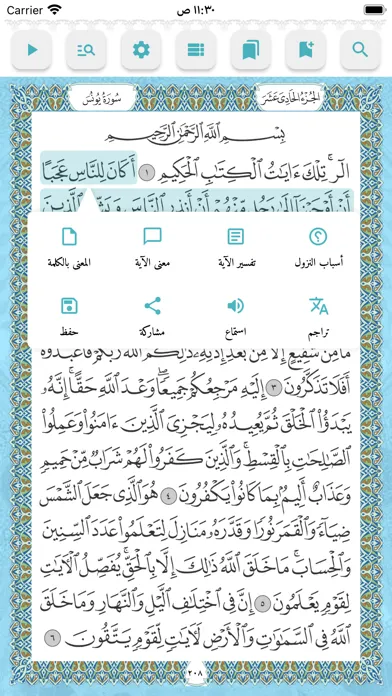 Carrier ١١:٣٠ ص
سُورَةُ يُونُسَ الجُزْءُ الحَادِي عَشَرَ
بِسْمِ اللَّهِ الرَّحْمَٰنِ الرَّحِيمِ
الٓرۚ تِلْكَ ءَايَٰتُ ٱلْكِتَٰبِ ٱلْحَكِيمِ ١ أَكَانَ لِلنَّاسِ عَجَبًا
أَنْ أَوْحَيْنَآ إِلَىٰ رَجُلٍ مِّنْهُمْ أَنْ أَنذِرِ ٱلنَّاسَ وَبَشِّرِ ٱلَّذِينَ
أسباب النزول تفسير الآية معنى الآية المعنى بالكلمة
تراجم استماع مشاركة حفظ
مَامِن شَفِيعٍ إِلَّا مِنۢ بَعْدِ إِذْنِهِۦۚ ذَٰلِكُمُ ٱللَّهُ رَبُّكُمْ فَٱعْبُدُوهُۚ
أَفَلَا تَذَكَّرُونَ ٣ إِلَيْهِ مَرْجِعُكُمْ جَمِيعًاۖ وَعْدَ ٱللَّهِ حَقًّاۚ إِنَّهُۥ
يَبْدَؤُا۟ ٱلْخَلْقَ ثُمَّ يُعِيدُهُۥ لِيَجْزِىَ ٱلَّذِينَ ءَامَنُوا۟ وَعَمِلُوا۟
ٱلصَّٰلِحَٰتِ بِٱلْقِسْطِۚ وَٱلَّذِينَ كَفَرُوا۟ لَهُمْ شَرَابٌ مِّنْ حَمِيمٍ
وَعَذَابٌ أَلِيمٌۢ بِمَا كَانُوا۟ يَكْفُرُونَ ٤ هُوَ ٱلَّذِى جَعَلَ ٱلشَّمْسَ
ضِيَآءً وَٱلْقَمَرَ نُورًا وَقَدَّرَهُۥ مَنَازِلَ لِتَعْلَمُوا۟ عَدَدَ ٱلسِّنِينَ
وَٱلْحِسَابَۚ مَا خَلَقَ ٱللَّهُ ذَٰلِكَ إِلَّا بِٱلْحَقِّۚ يُفَصِّلُ ٱلْءَايَٰتِ
لِقَوْمٍ يَعْلَمُونَ ٥ إِنَّ فِى ٱخْتِلَٰفِ ٱلَّيْلِ وَٱلنَّهَارِ وَمَا خَلَقَ
ٱللَّهُ فِى ٱلسَّمَٰوَٰتِ وَٱلْأَرْضِ لَءَايَٰتٍ لِّقَوْمٍ يَتَّقُونَ ٦
٢٠٨